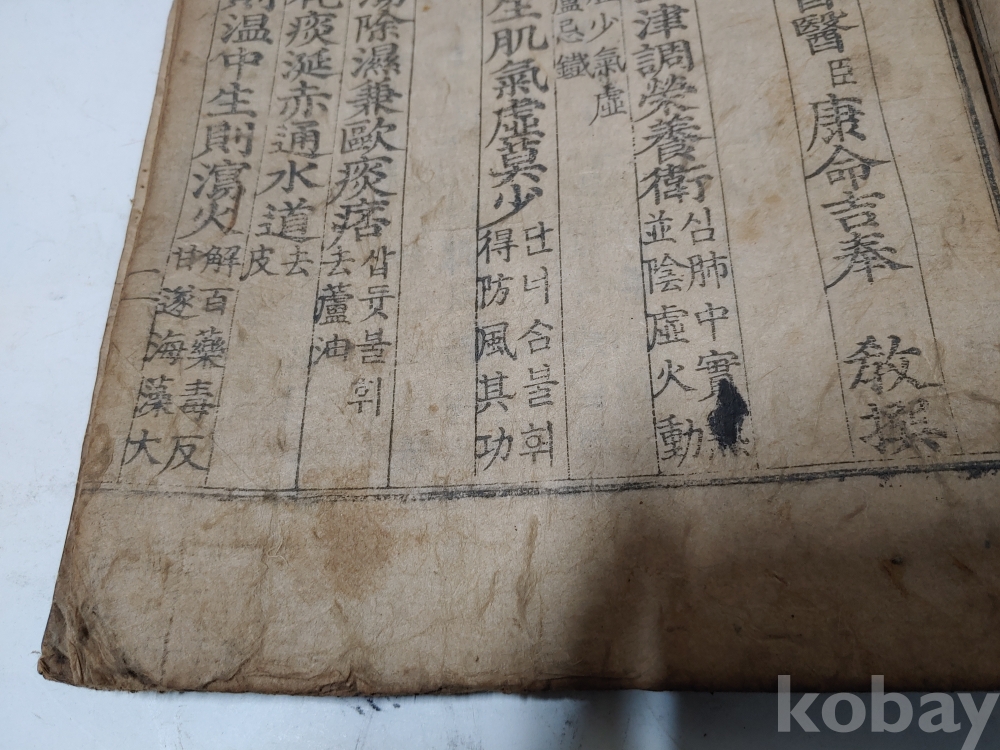 醫臣康命吉奉 敎撰
津調榮養衛
심肺中實無
並陰虛火動
少氣虛
蘆忌鐵
生肌氣虛莫少
단너ᄉᆞᆷ불휘
得防風其功
除濕兼歐痰痞
삽듓불휘
去蘆油
痰涎赤通水道
去
皮
則温中生則瀉火
解百藥毒反
甘遂海藻大
kobay